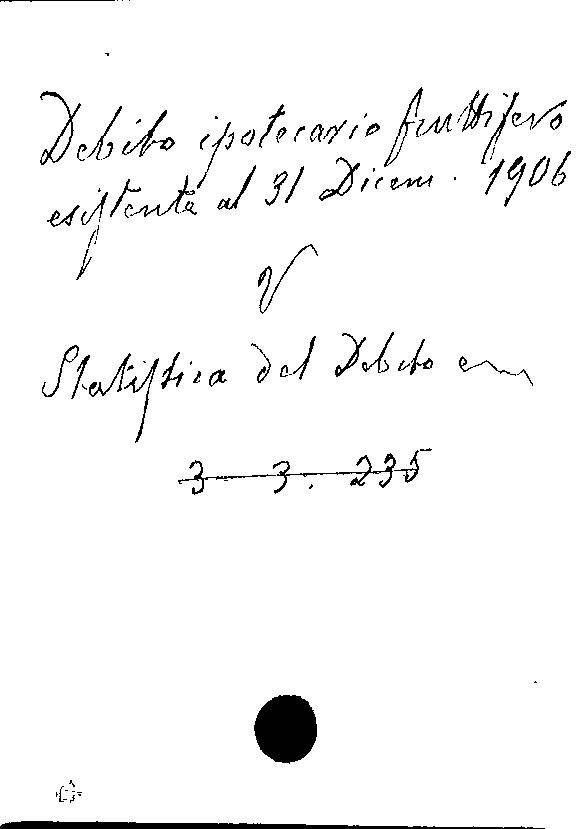 Debito ipotecario fruttifero
esistente al 31 Dicem. 1906
V
Statistica del Debito
3 3. 235